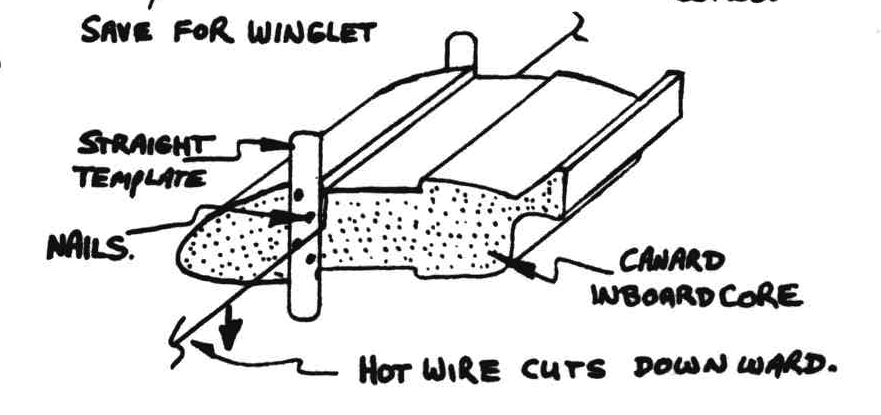 SAVE FOR WINGLET
STRAIGHT
TEMPLATE
NAILS.
CANARD
INBOARD CORE
HOT WIRE CUTS DOWNWARD.